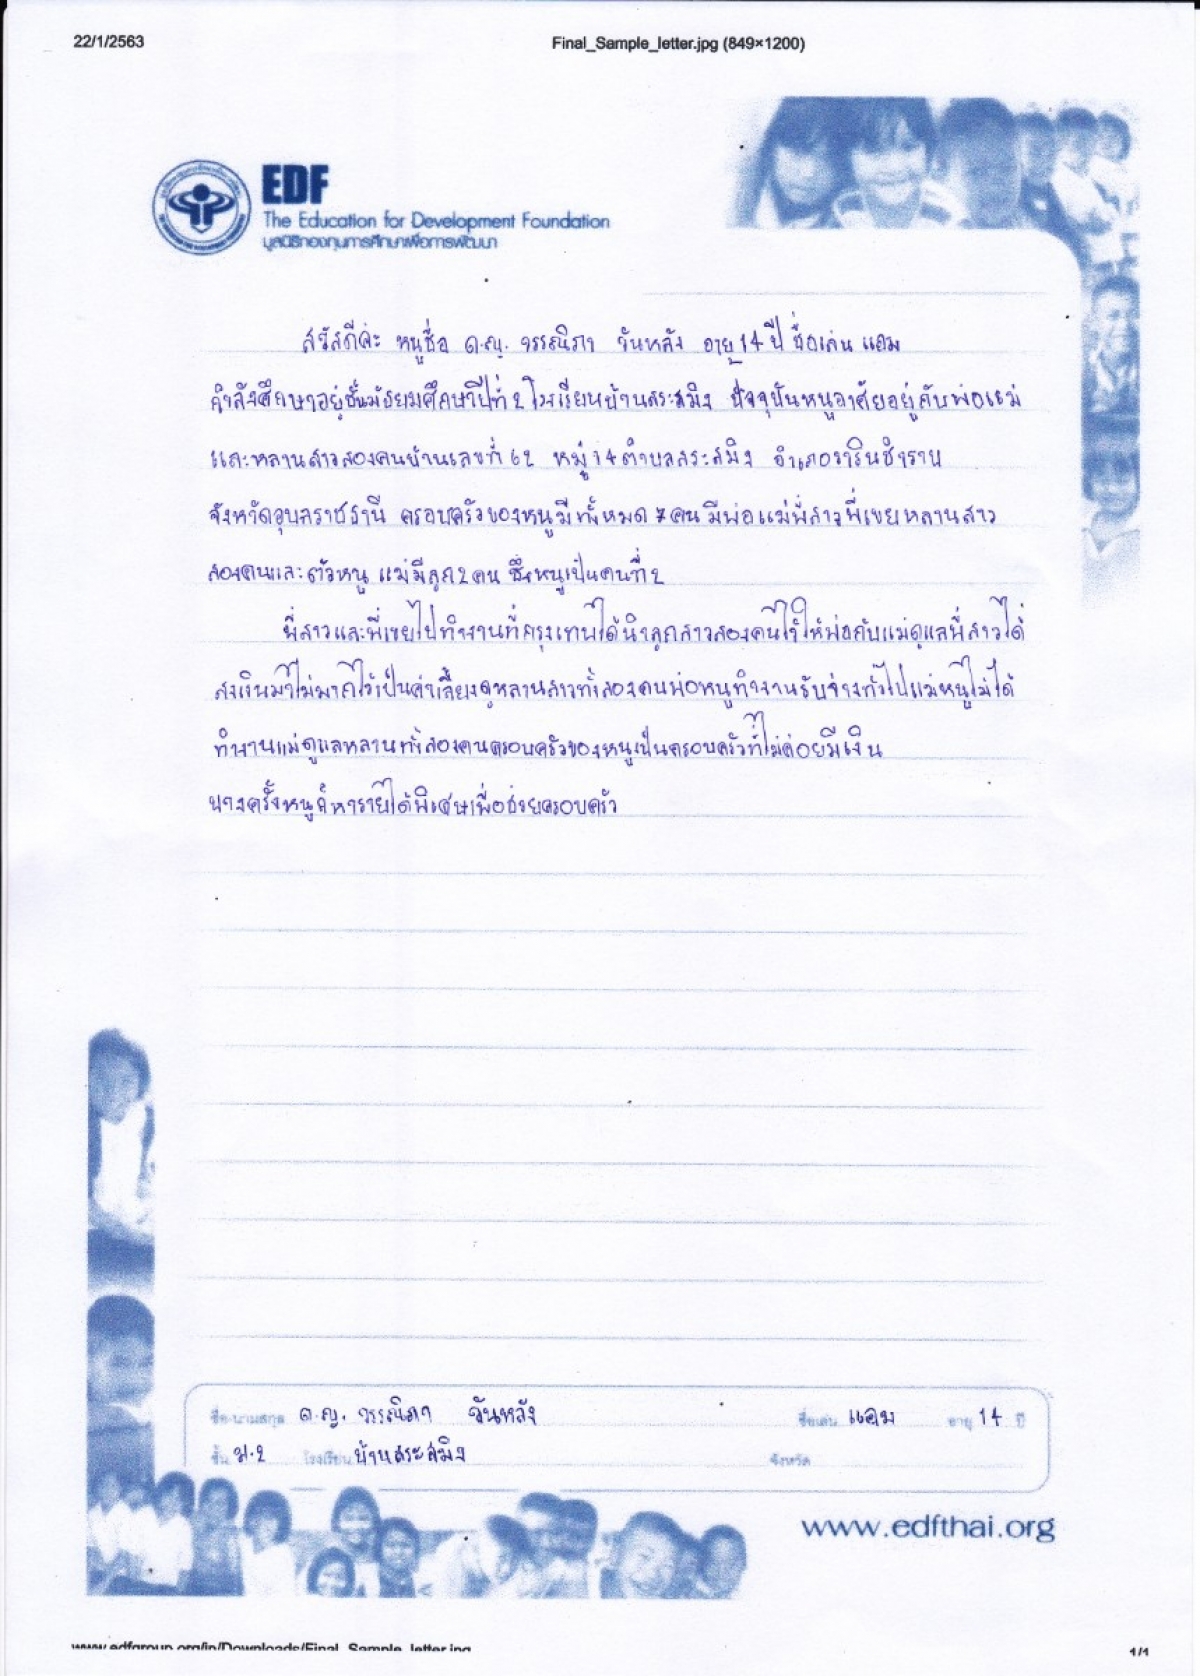 22/1/2563
Final_Sample_letter.jpg (849×1200)
EDF
The Education for Development Foundation
มูลนิธิกองทุนการศึกษาเพื่อการพัฒนา
สวัสดีค่ะ หนูชื่อ ด.ญ. วรรณิภา วันหลัง อายุ 14 ปี ชื่อเล่น แอม
กำลังศึกษาอยู่ชั้นมัธยมศึกษาปีที่ 2 โรงเรียนบ้านสระสมิง ปัจจุบันหนูอาศัยอยู่กับพ่อแม่
และหลานสาวสองคนบ้านเลขที่ 62 หมู่ 14 ตำบลสระสมิง อำเภอวารินชำราบ
จังหวัดอุบลราชธานี ครอบครัวของหนูมีทั้งหมด 7 คน มีพ่อแม่พี่สาวพี่เขยหลานสาว
สองคนและตัวหนู แม่มีลูก 2 คน ซึ่งหนูเป็นคนที่ 2
พี่สาวและพี่เขยไปทำงานที่กรุงเทพได้นำลูกสาวสองคนไว้ให้พ่อกับแม่ดูแลพี่สาวได้
ส่งเงินมาไม่มากไว้เป็นค่าเลี้ยงดูหลานสาวทั้งสองคนพ่อหนูทำงานรับจ้างทั่วไปแม่หนูไม่ได้
ทำงานแม่ดูแลหลานทั้งสองคนครอบครัวของหนูเป็นครอบครัวที่ไม่ค่อยมีเงิน
บางครั้งหนูก็หารายได้พิเศษเพื่อช่วยครอบครัว
ชื่อ-นามสกุล ด.ญ. วรรณิภา วันหลัง ชื่อเล่น แอม อายุ 14 ปี
ชั้น ม.2 โรงเรียน บ้านสระสมิง จังหวัด
www.edfthai.org
www.edfgroup.org/jp/Downloads/Final_Sample_letter.jpg
1/1